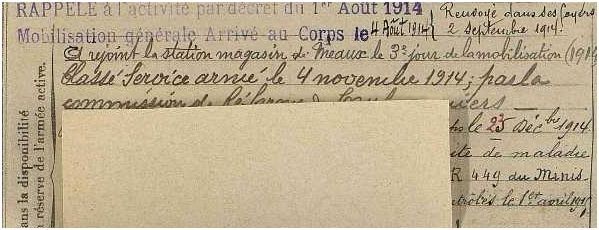 RAPPELÉ à l'activité par décret du 1er Août 1914
Mobilisation générale Arrivé au Corps le 4 Août 1914
Renvoyé dans ses foyers
2 septembre 1914.
A rejoint la station magasin de Meaux le 3e jour de la mobilisation (1914
Classé Service armé le 4 novembre 1914; par la
commission de Réforme
le 23 Déc bre 1914
ite de maladie
R 449 du Minis-
le 1er avril 1915
ans la disponibilité
n réserve de l'armée active.